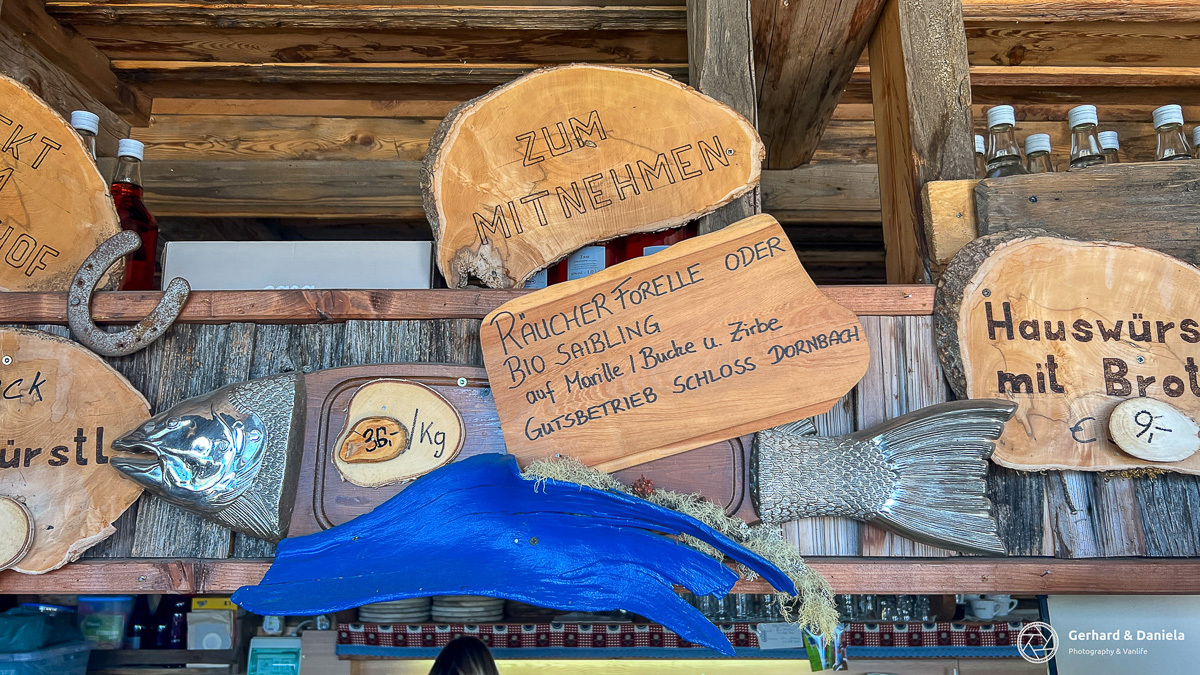 EKT
HOF
ZUM
MITNEHMEN
RÄUCHER FORELLE ODER
BIO SAIBLING
auf Marille / Buche u. Zirbe
GUTSBETRIEB SCHLOSS DORNBACH
36.-/Kg
ÜCK
ürstl
Hauswürs
mit Brot
€ 9,-
Gerhard & Daniela
Photography & Vanlife